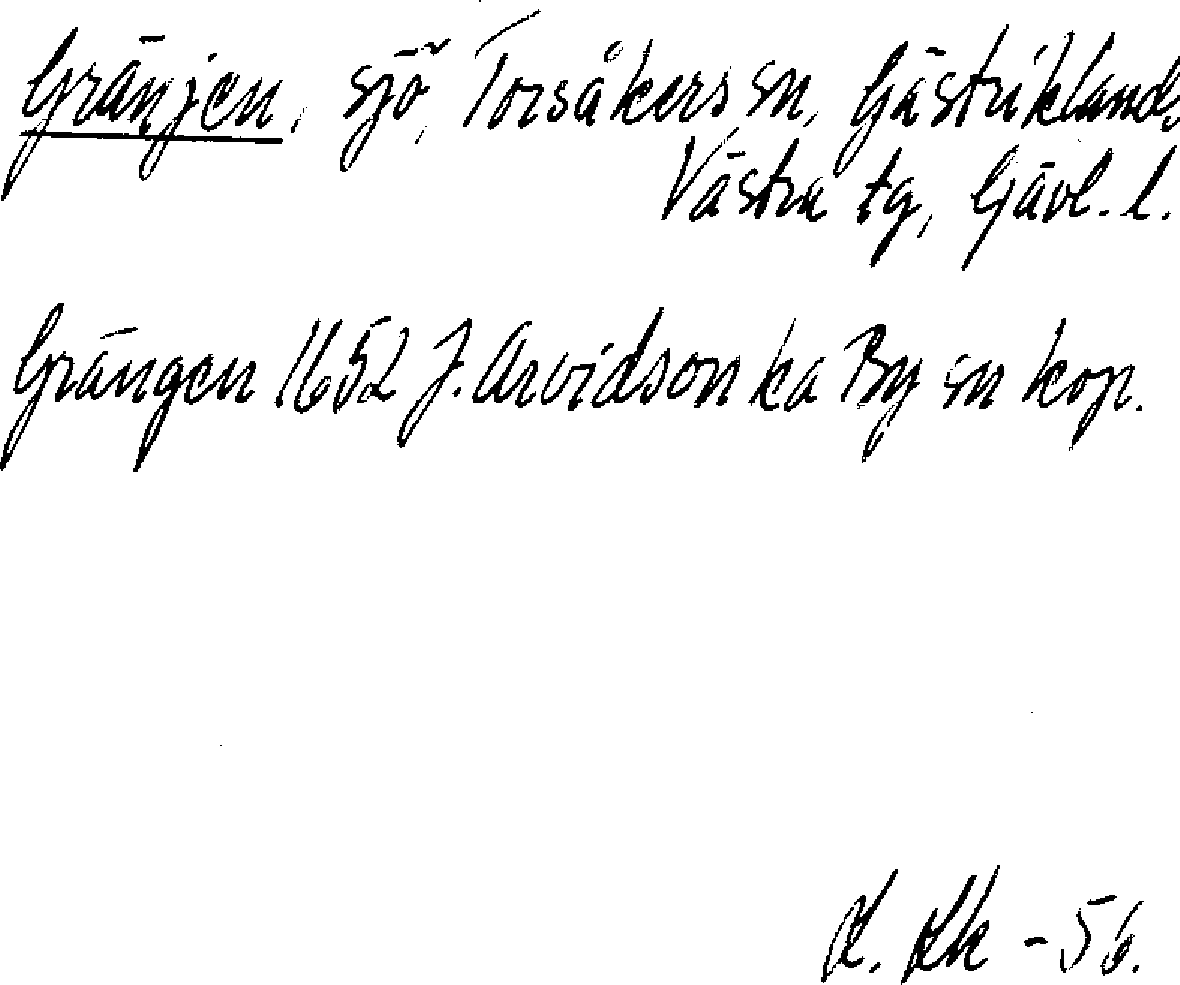 Gränjen, sjö, Torsåkers sn, Gästriklands
Västra tg, Gävl. l.
Grängen 1652 J. Arvidson ka By sn kop.
-56.